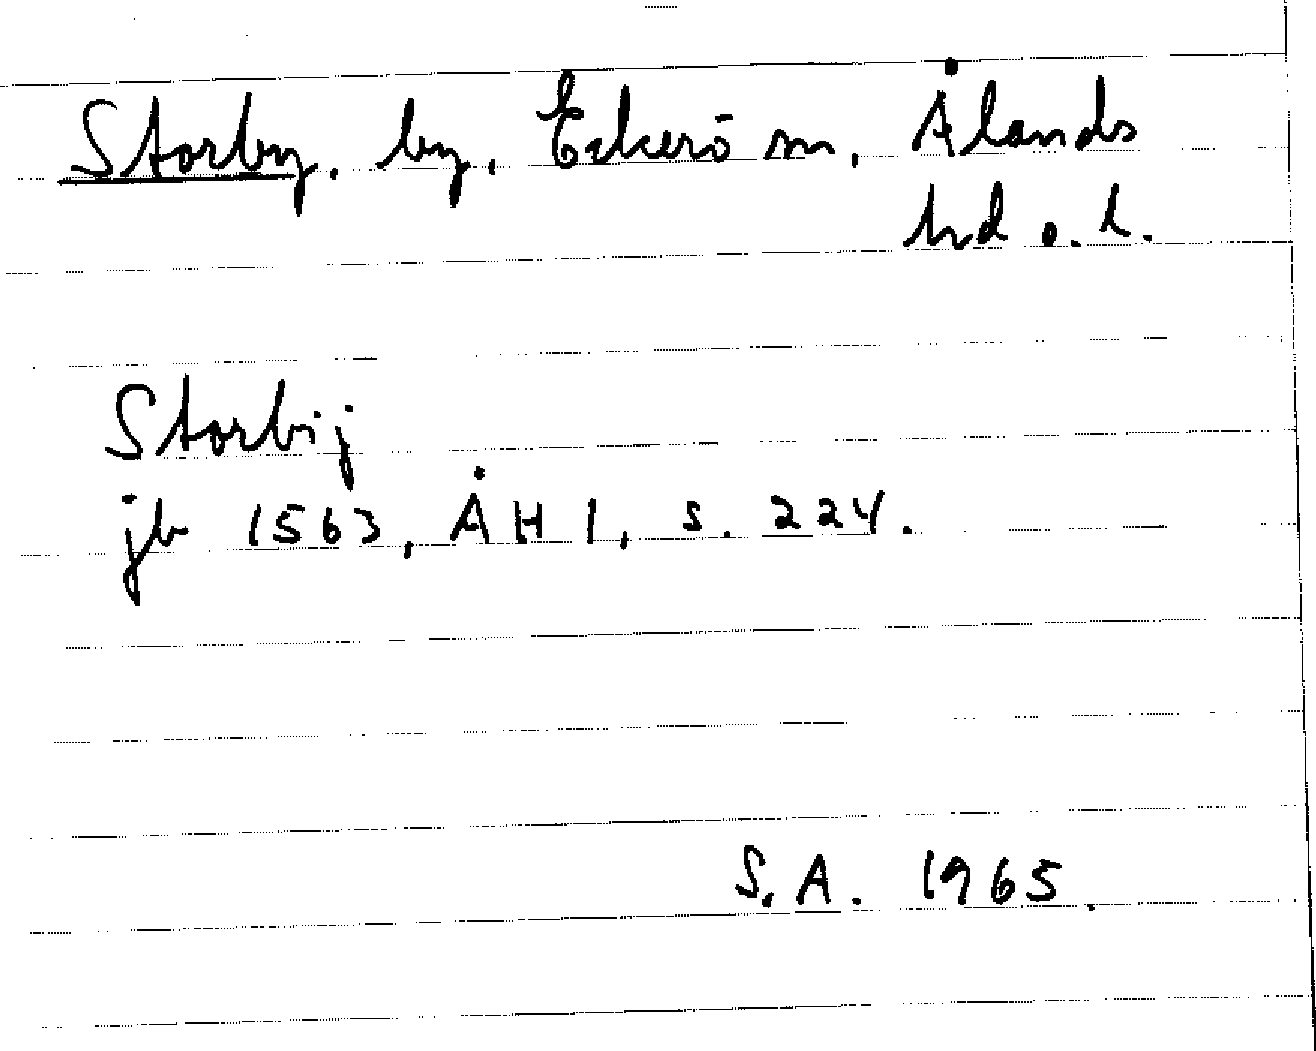 Storby, by, Eckerö sn, Ålands
hd o. l.
Storbij
jb 1563, ÅH 1, s. 224.
S.A. 1965.